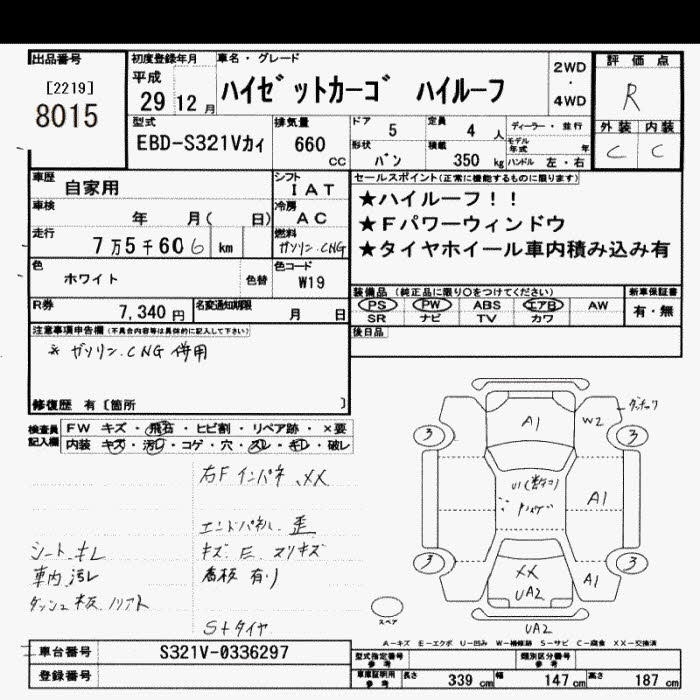 出品番号
[2219]
8015
初度登録年月
平成
29 12 月
車名・グレード
ハイゼットカーゴ ハイルーフ
2WD
・
4WD
評価点
R
外装 内装
C C
型式
EBD-S321Vカイ
排気量
660
CC
ドア
5
定員
4 人
ディーラー・並行
形状
バン
積載
350 kg
モデル年式 年
ハンドル 左・右
車歴
自家用
シフト
IAT
車検
年 月( 日)
冷房
AC
走行
7万5千606 km
燃料
ガソリン.CNG
色
ホワイト
色替
色コード
W19
R券
7,340 円
名変通知期限
月 日
セールスポイント(正常に機能するものに限ります)
★ハイルーフ!!
★Fパワーウィンドウ
★タイヤホイール車内積み込み有
装備品 (純正品に限り○をつけてください)
PS PW ABS エアB AW
SR ナビ TV カワ
新車保証書
有・無
後日品
注意事項申告欄(不具合内容等は具体的に記入して下さい)
※ ガソリン.CNG 併用
修復歴 有〔箇所 〕
検査員記入欄
FW キズ・飛石・ヒビ割・リペア跡・×要
内装 キズ・汚レ・コゲ・穴・スレ・キレ・破レ
右F インパネ XX
エンドパネル 歪
キズ E スリキズ
看板有り
Sタイヤ
シート キレ
車内 汚レ
A1
W2
3
3
A1
XX
UA2
3
3
A1
UA2
スペア
A-キズ E-エクボ U-凹み W-補修跡 S-サビ C-腐食 XX-交換済
車台番号
S321V-0336297
登録番号
型式指定番号
参考
類別区分番号
参考
車庫証明用
参考
長さ 339 cm 幅 147 cm 高さ 187 cm